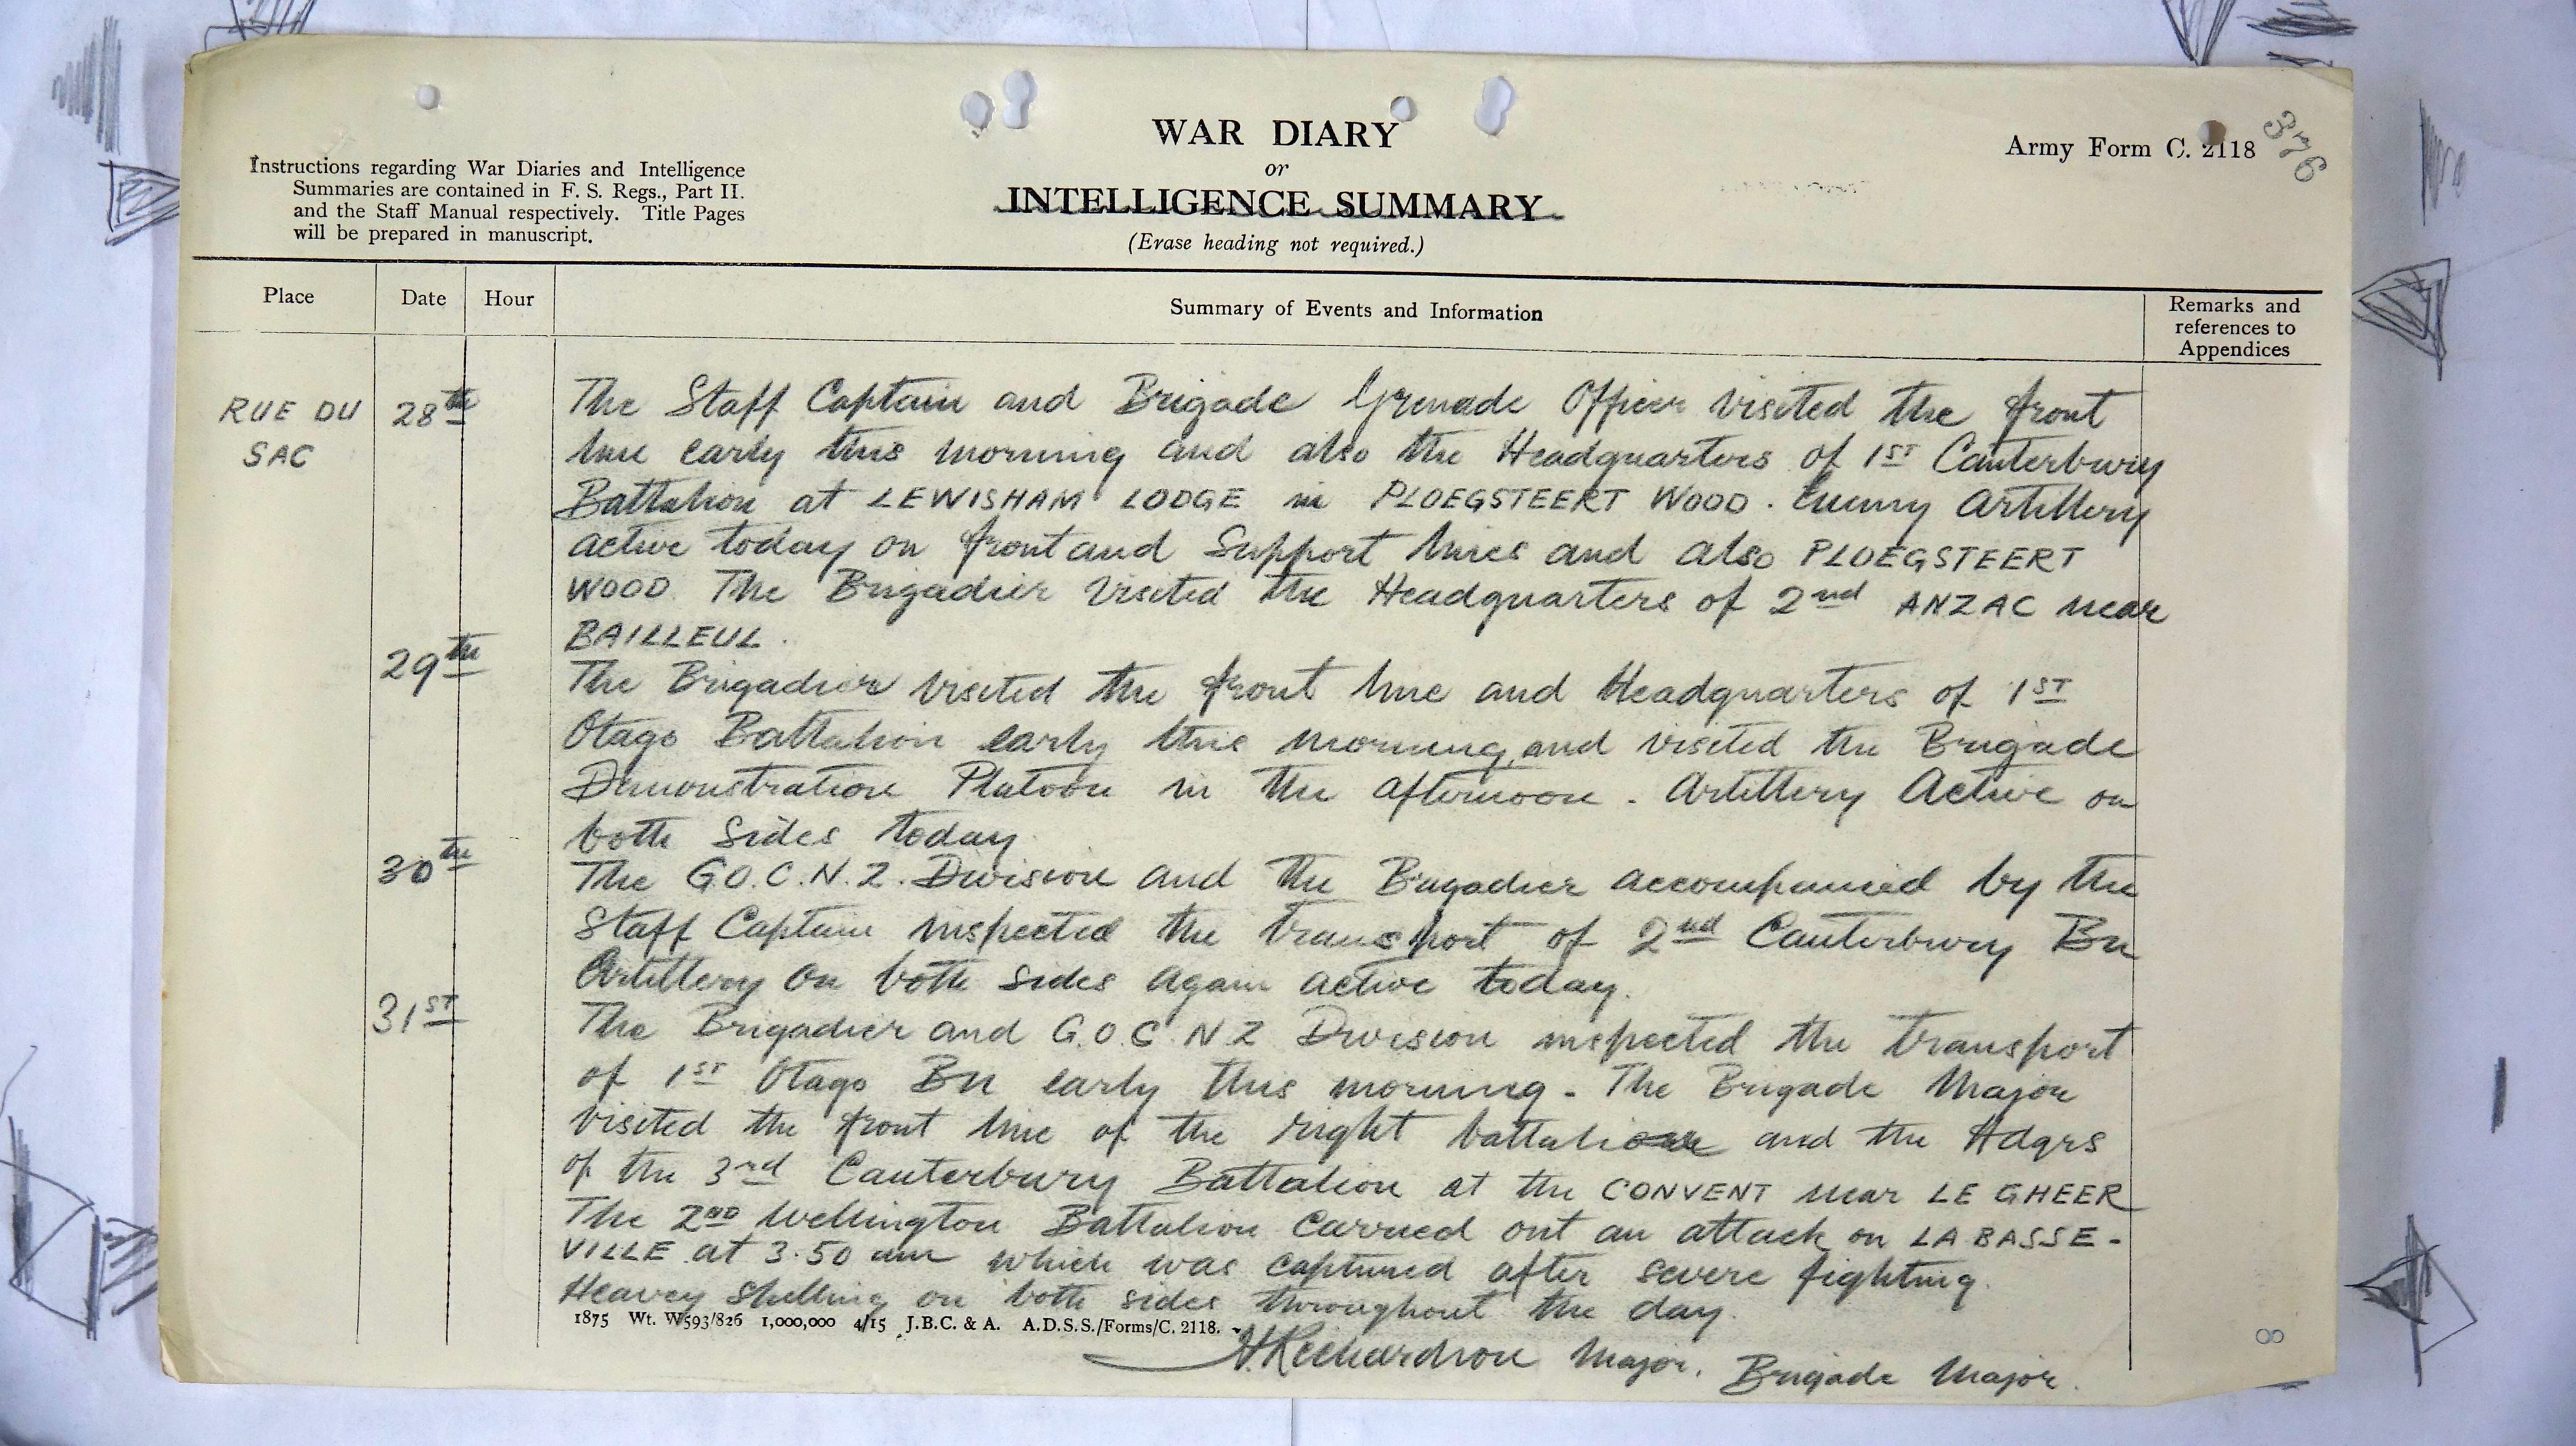 WAR DIARY
or
INTELLIGENCE SUMMARY
(Erase heading not required.)
Instructions regarding War Diaries and Intelligence
Summaries are contained in F. S. Regs., Part II.
and the Staff Manual respectively. Title Pages
will be prepared in manuscript.
Army Form C. 2118
376
Place
Date
Hour
Summary of Events and Information
Remarks and
references to
Appendices
RUE DU
SAC
28th
The Staff Captain and Brigade Grenade Officer visited the front
line early this morning and also the Headquarters of 1ST Canterbury
Battalion at LEWISHAM LODGE in PLOEGSTEERT WOOD. Enemy Artillery
active today on front and Support lines and also PLOEGSTEERT
WOOD. The Brigadier visited the Headquarters of 2nd ANZAC near
BAILLEUL.
29th
The Brigadier visited the front line and Headquarters of 1ST
Otago Battalion early this morning, and visited the Brigade
Demonstration Platoon in the afternoon. Artillery Active on
both sides today
30th
The G.O.C. N.Z. Division and the Brigadier accompanied by the
Staff Captain inspected the transport of 2nd Canterbury Bn
Artillery on both sides again active today.
31ST
The Brigadier and G.O.C. N Z Division inspected the transport
of 1ST Otago Bn early this morning - The Brigade Major
visited the front line of the right battalion and the Hdqrs
of the 3rd Canterbury Battalion at the CONVENT near LE GHEER
The 2ND Wellington Battalion carried out an attack on LA BASSE-
VILLE at 3.50 am which was captured after severe fighting.
Heavey shelling on both sides throughout the day.
1875 Wt. W593/826 1,000,000 4/15 J.B.C. & A. A.D.S.S./Forms/C. 2118.
H Richardson Major. Brigade Major.
8